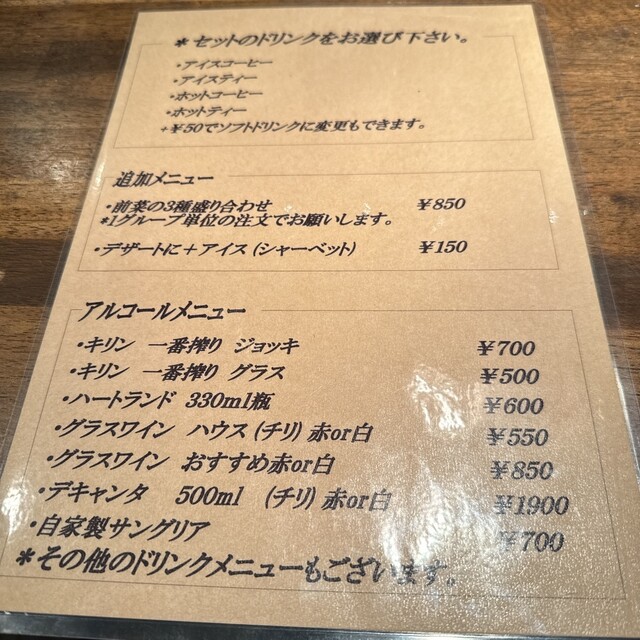 ＊セットのドリンクをお選び下さい。
・アイスコーヒー
・アイスティー
・ホットコーヒー
・ホットティー
+￥50でソフトドリンクに変更もできます。
追加メニュー
・前菜の3種盛り合わせ ￥850
*1グループ単位の注文でお願いします。
・デザートに＋アイス(シャーベット) ￥150
アルコールメニュー
・キリン 一番搾り ジョッキ ￥700
・キリン 一番搾り グラス ￥500
・ハートランド 330ml瓶 ￥600
・グラスワイン ハウス(チリ)赤or白 ￥550
・グラスワイン おすすめ赤or白 ￥850
・デキャンタ 500ml (チリ)赤or白 ￥1900
・自家製サングリア ￥700
＊その他のドリンクメニューもございます。